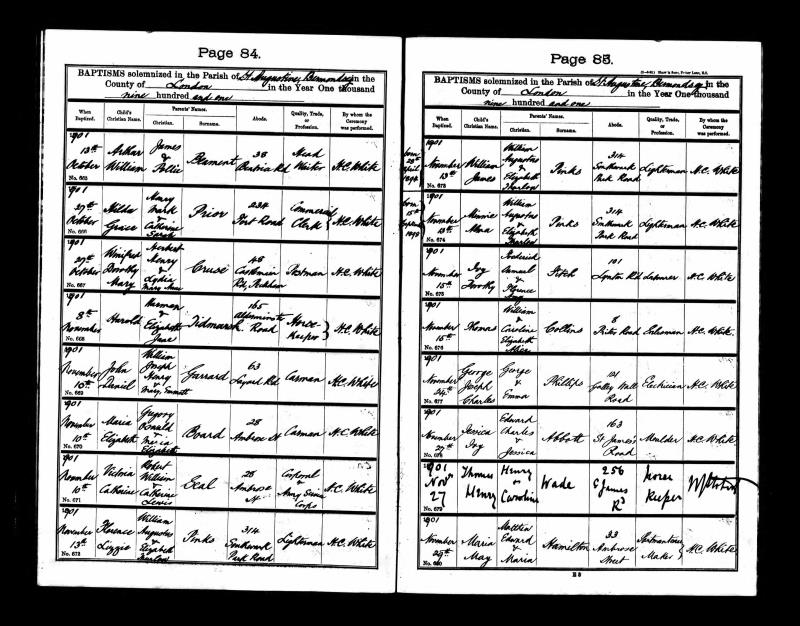 Page 84.
BAPTISMS solemnized in the Parish of St Augustine, Bermondsey in the
County of London in the Year One thousand
nine hundred and one
When Baptized.
Child's Christian Name.
Parents' Names.
Christian.
Surname.
Abode.
Quality, Trade, or Profession.
By whom the Ceremony was performed.
1901
13th October
No. 665
Arthur William
James & Pollie
Blament
38
Head Waiter
H.C. White
1901
27th October
No. 666
Hilda Grace
Henry Mark & Catherine Sarah
Prior
234 Fort Road
Commercial Clerk
H.C. White
1901
27th October
No. 667
Winifred Dorothy Mary
Herbert Henry & Lydia Mary Ann
Cruse
46 Rd, Peckham
Postman
H.C. White
1901
8th November
No. 668
Harold
Herman & Elizabeth Jane
Tidmarsh
165 Road
Horse-Keeper
H.C. White
1901
November 10th
No. 669
John Daniel
William Joseph Henry & Mary
Garrard
63 Layard Rd
Carman
H.C. White
1901
November 10th
No. 670
Maria Elizabeth
Gregory Donald & Maria Elizabeth
Board
28 Ambrose St
Carman
H.C. White
1901
November 10th
No. 671
Victoria Catherine
Robert William & Catherine Lewis
28 Ambrose St
Corporal Army Service Corps
H.C. White
1901
November 13th
No. 672
Florence Lizzie
William Augustus & Elizabeth
Pinks
314 Southwark Park Road
Lighterman
H.C. White
Page 85.
BAPTISMS solemnized in the Parish of St Augustine, Bermondsey in the
County of London in the Year One thousand
nine hundred and one
When Baptized.
Child's Christian Name.
Parents' Names.
Christian.
Surname.
Abode.
Quality, Trade, or Profession.
By whom the Ceremony was performed.
born 28th April
1901
November 13th
No. 673
William James
William Augustus & Elizabeth
Pinks
314 Southwark Park Road
Lighterman
H.C. White
born 15th September
1901
November 13th
No. 674
Minnie
William Augustus & Elizabeth
Pinks
314 Southwark Park Road
Lighterman
H.C. White
1901
November 15th
No. 675
Ivy Dorothy
Frederick Samuel & Florence Ivy
Fitch
101 Lynton Rd
Labourer
H.C. White
1901
November 15th
No. 676
Thomas
William & Caroline Elizabeth Alice
Collins
8 Road
H.C. White
1901
November 24th
No. 677
George Joseph Charles
George & Emma
Phillips
121 Galley Wall Road
Electrician
H.C. White
1901
November 27th
No. 678
Jessica Ivy
Edward Charles & Jessica
Abbott
163 St James's Road
Moulder
H.C. White
1901
Novr 27
No. 679
Thomas Henry
Henry or Caroline
Wade
256 St James Rd
Horse Keeper
1901
November 29th
No. 680
Maria May
Matthew Edward & Maria
Hamilton
33 Ambrose Street
Portmanteau Maker
H.C. White